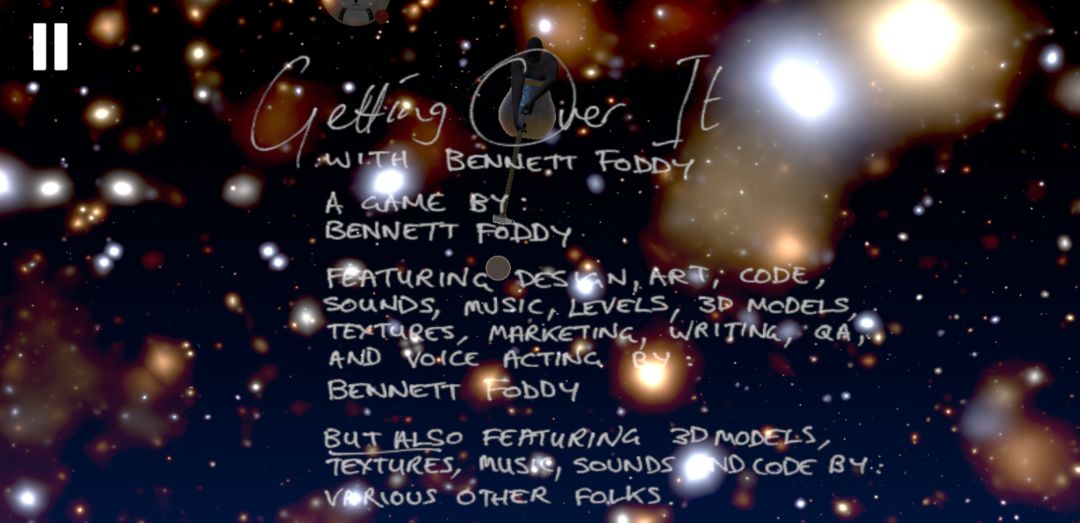 Getting Over It
WITH BENNETT FODDY
A GAME BY:
BENNETT FODDY
FEATURING DESIGN, ART, CODE,
SOUNDS, MUSIC, LEVELS, 3D MODELS,
TEXTURES, MARKETING, WRITING, QA,
AND VOICE ACTING BY:
BENNETT FODDY
BUT ALSO FEATURING 3D MODELS,
TEXTURES, MUSIC, SOUNDS AND CODE BY:
VARIOUS OTHER FOLKS.